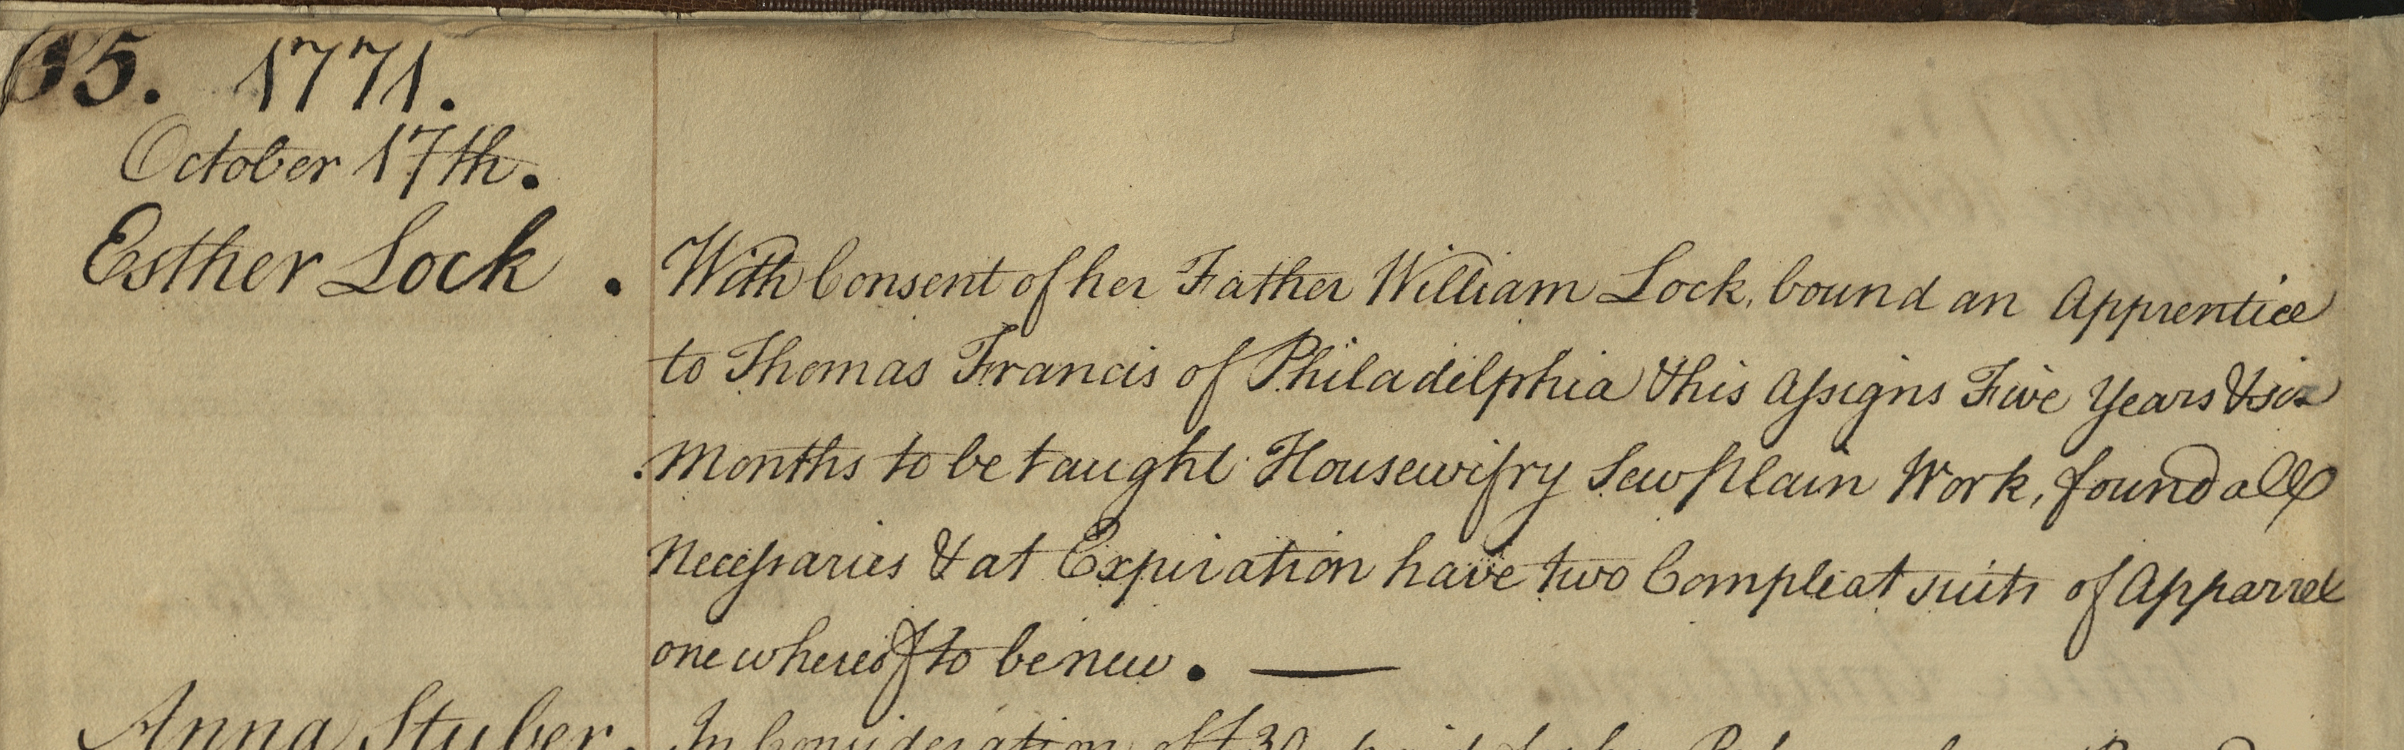 65. 1771.
October 17th.
Esther Lock . With Consent of her Father William Lock, bound an Apprentice
to Thomas Francis of Philadelphia & his Assigns Five Years & six
Months to be taught Housewifry Sew plain Work, found all
Necessaries & at Expiration have two Compleat suits of Apparrel
one whereof to be new. —
Anna Stuber. In Consideration of £30 paid